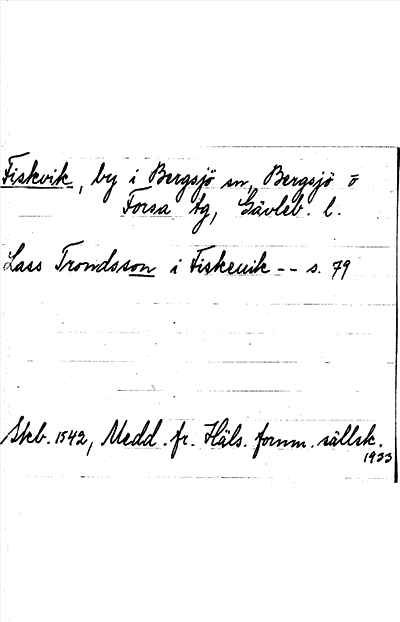 Fiskvik, by i Bergsjö sn, Bergsjö o
Forsa tg, Gävleb. l.
Lass Trondsson i Fiskeuik -- s. 79
Skb. 1542, Medd. fr. Häls. fornm. sällsk.
1933